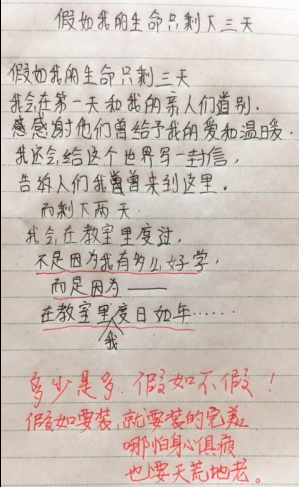 假如我的生命只剩下三天
假如我的生命只剩三天
我会在第一天和我的亲人们道别.
感感谢他们曾给予我的爱和温暖.
我还会给这个世界写一封信,
告诉人们我曾来到这里。
而剩下两天
我会在教室里度过,
不是因为我有多么好学,
而是因为——
在教室里我度日如年……
多少是多.假如不假!
假如要装,就要装的完美
哪怕身心俱疲
也要天荒地老。